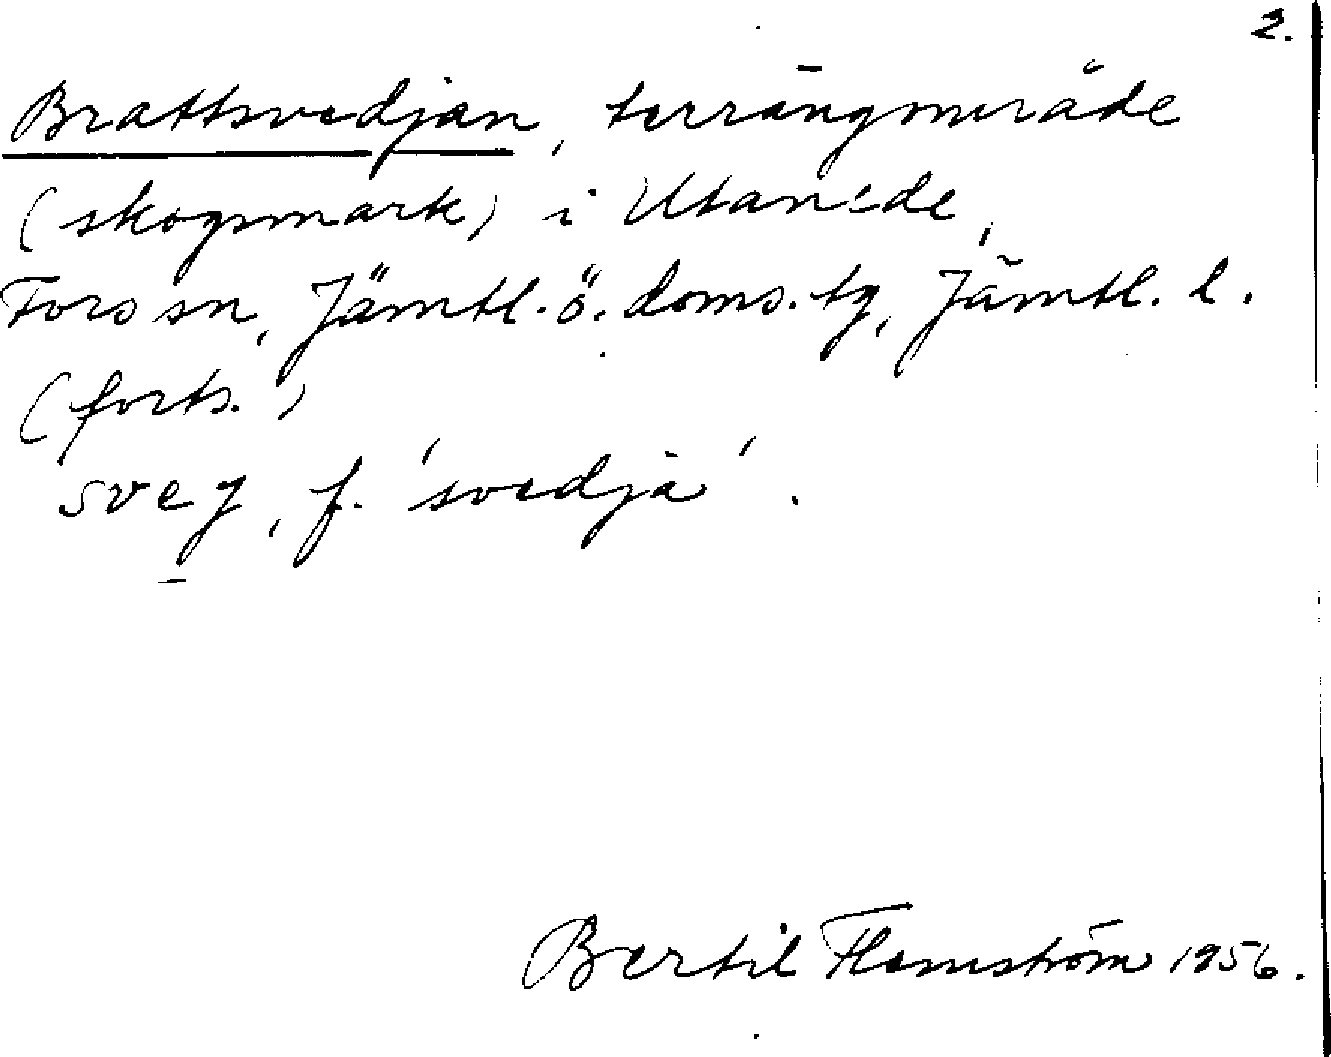 2.
Brattsvedjan, terrängområde
(skogsmark) i Utanede,
Fors sn, Jämtl. ö. doms. tg, Jämtl. l.
(forts.)
sveg, f. 'svedja'.
Bertil Flemström 1956.